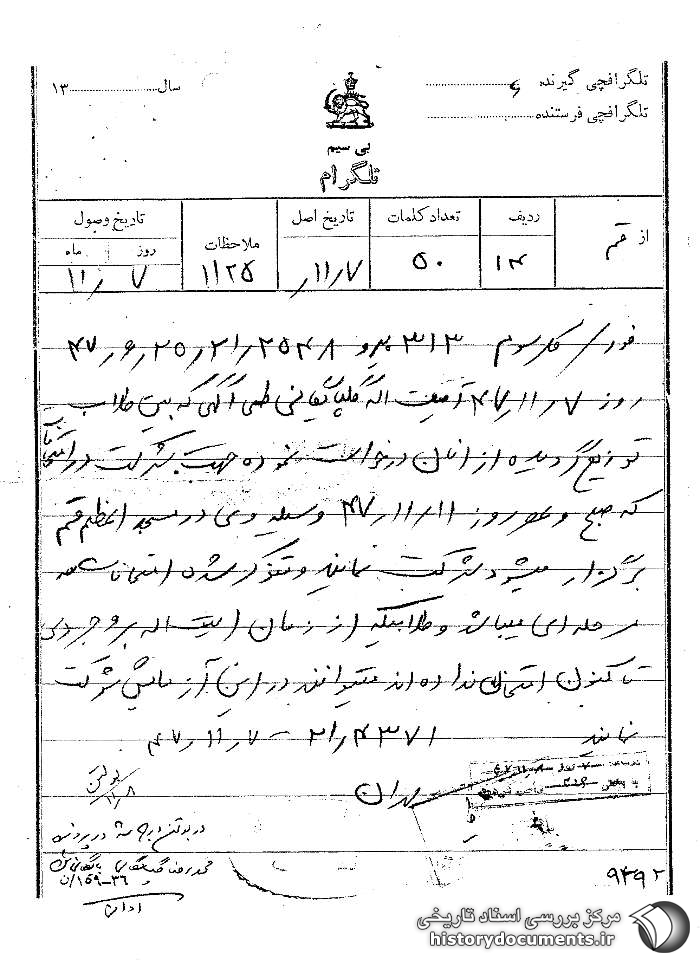 تلگرافچی گیرنده
تلگرافچی فرستنده
سال ۱۳
بی سیم
تلگرام
از قم
ردیف ۱۴
تعداد کلمات ۵۰
تاریخ اصل ۱۱/۷
ملاحظات ۱۱۲۵
تاریخ وصول
روز ماه
۷ / ۱۱
۳۱۳ پیرو ۲۵۴۸ / ۲۱ - ۲۵ / ۶ / ۴۷
روز ۴۷/۱۱/۷ آیت اله گلپایگانی طی آگهی که بین طلاب
توزیع گردیده از آنان درخواست نموده جهت شرکت در امتحانات
که صبح و عصر روز ۴۷/۱۱/۱۱ وسیله وی در مسجد اعظم قم
برگزار میشود شرکت نمایند و متذکر شده امتحانات سه
مرحله ای میباشد و طلابیکه از زمان آیت اله بروجردی
تا کنون امتحان نداده اند میتوانند در این آزمایش شرکت
نمایند ۴۳۷۱ / ۲۱ - ۴۷/۱۱/۷
مهران
بولتن
۱۱/۸
در پرونده
محمدرضا گلپایگانی بایگانی شود
۱۵۹-۳۶
۹۴۹۲
مرکز بررسی اسناد تاریخی
historydocuments.ir